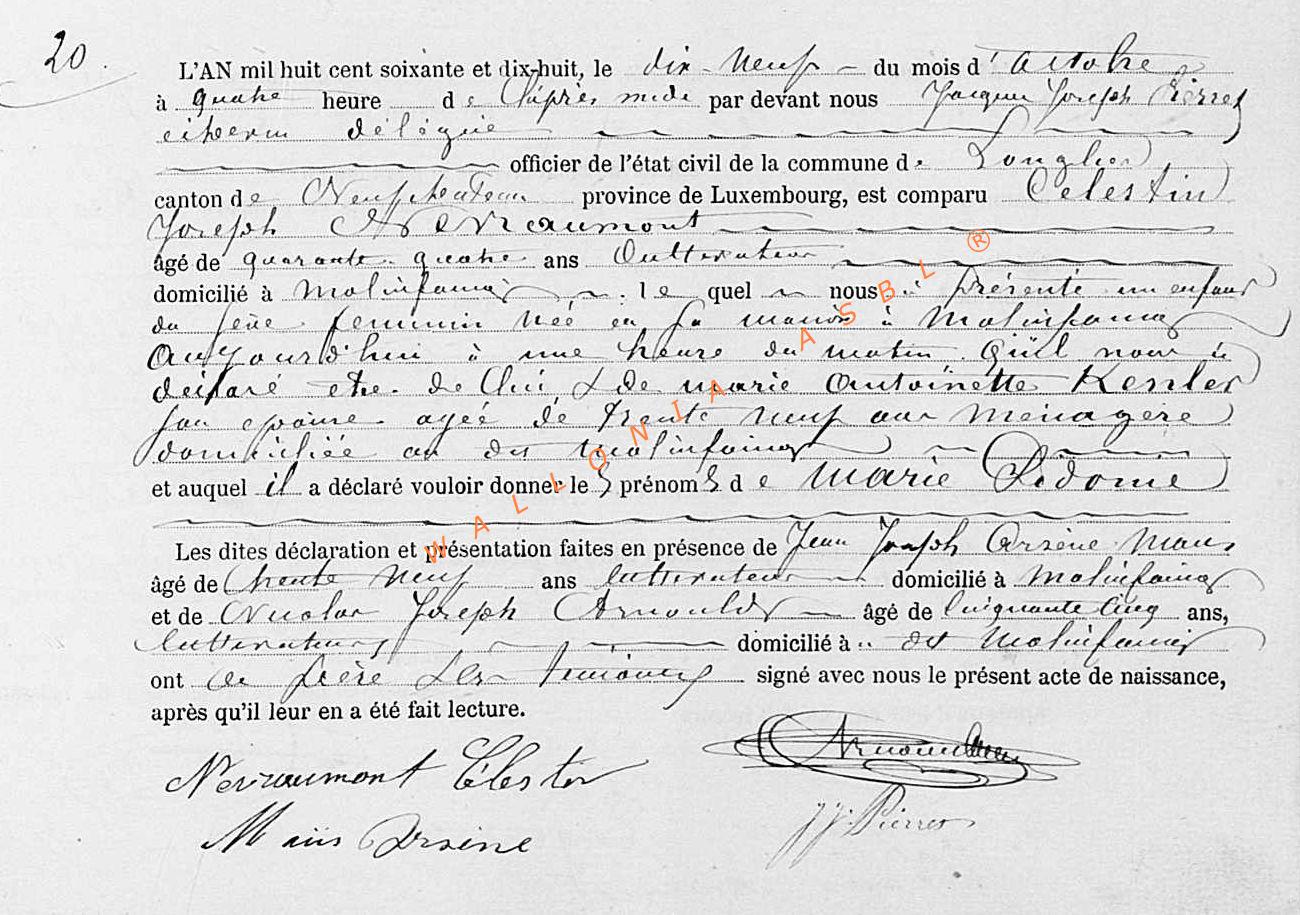 20.
L'AN mil huit cent soixante et dix-huit, le dix-neuf du mois d'octobre
à quatre heure de l'après midi par devant nous Jacques Joseph Pierret
échevin délégué
officier de l'état civil de la commune de Longlier,
canton de Neufchateau province de Luxembourg, est comparu Célestin
Joseph Nevraumont
âgé de quarante quatre ans Cultivateur
domicilié à Molinfaing lequel nous à présenté un enfant
du sexe feminin née en sa maison à Molinfaing
aujourd'hui à une heure du matin qu'il nous à
déclaré etre de lui & de marie Antoinette Kessler
son epouse agée de trente neuf ans Menagère
domiciliée au dit Molinfaing
et auquel il a déclaré vouloir donner les prénoms de Marie Sidonie
Les dites déclaration et présentation faites en présence de Jean Joseph Arsène Maus
âgé de trente neuf ans cultivateur domicilié à Molinfaing
et de Nicolas Joseph Arnould âgé de cinquante cinq ans,
cultivateur domicilié à dit Molinfaing
ont le père & les temoins signé avec nous le présent acte de naissance,
après qu'il leur en a été fait lecture.
Nevraumont Célestin
Maus Arsène
J.J. Pierret
WALLONIA ASBL ®